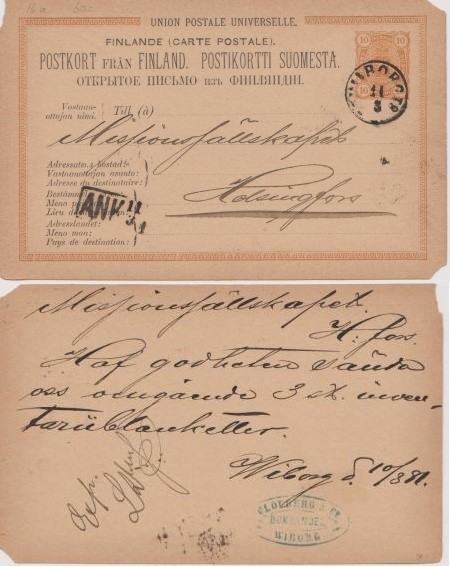 16a 50c
UNION POSTALE UNIVERSELLE.
FINLANDE (CARTE POSTALE).
POSTKORT FRÅN FINLAND. POSTIKORTTI SUOMESTA.
ОТКРЫТОЕ ПИСЬМО изъ ФИНЛЯНДІИ.
10 10
10 10
WIBORG
11
3
Vastaan-
ottajan nimi.
Till (à)
Missionsfällskapet
Adressatens bostad:
Vastaanottajan asunto:
Adresse du destinataire:
Helsingfors
Lieu de
ANK 11
3 1
Adresslandet:
Meno maa:
Pays de destination:
Missionsfällskapet.
H:fors.
Haf godheten sända
oss omgående 3 st. inven-
tarüblanketter.
Wiborg d. 10/3 81.
Exp.
CLOUBERG & C
BOKHANDEL
WIBORG